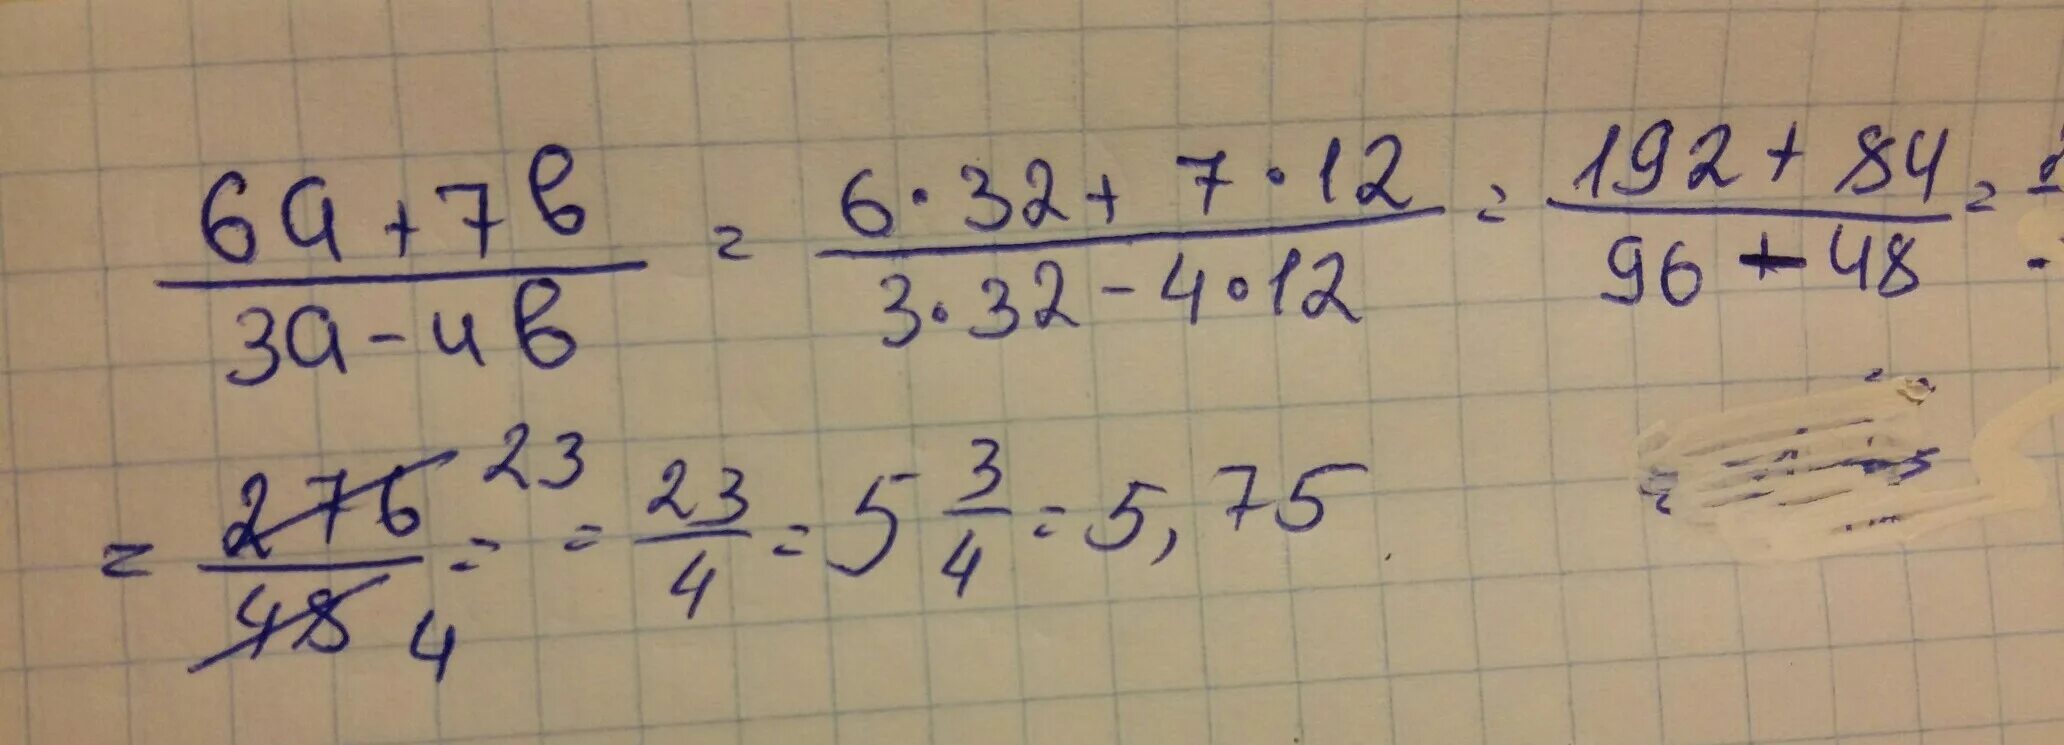 (6a + 7b)/(3a - 4b) = (6·32 + 7·12)/(3·32 - 4·12) = (192 + 84)/(96 + 48) =
= 276/48 = 23 4 = 23/4 = 5 3/4 = 5,75